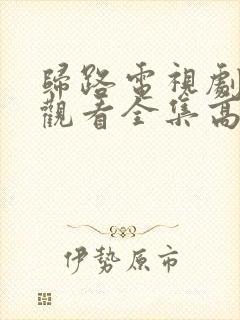 歸路電視劇
觀看全集高
伊勢原市